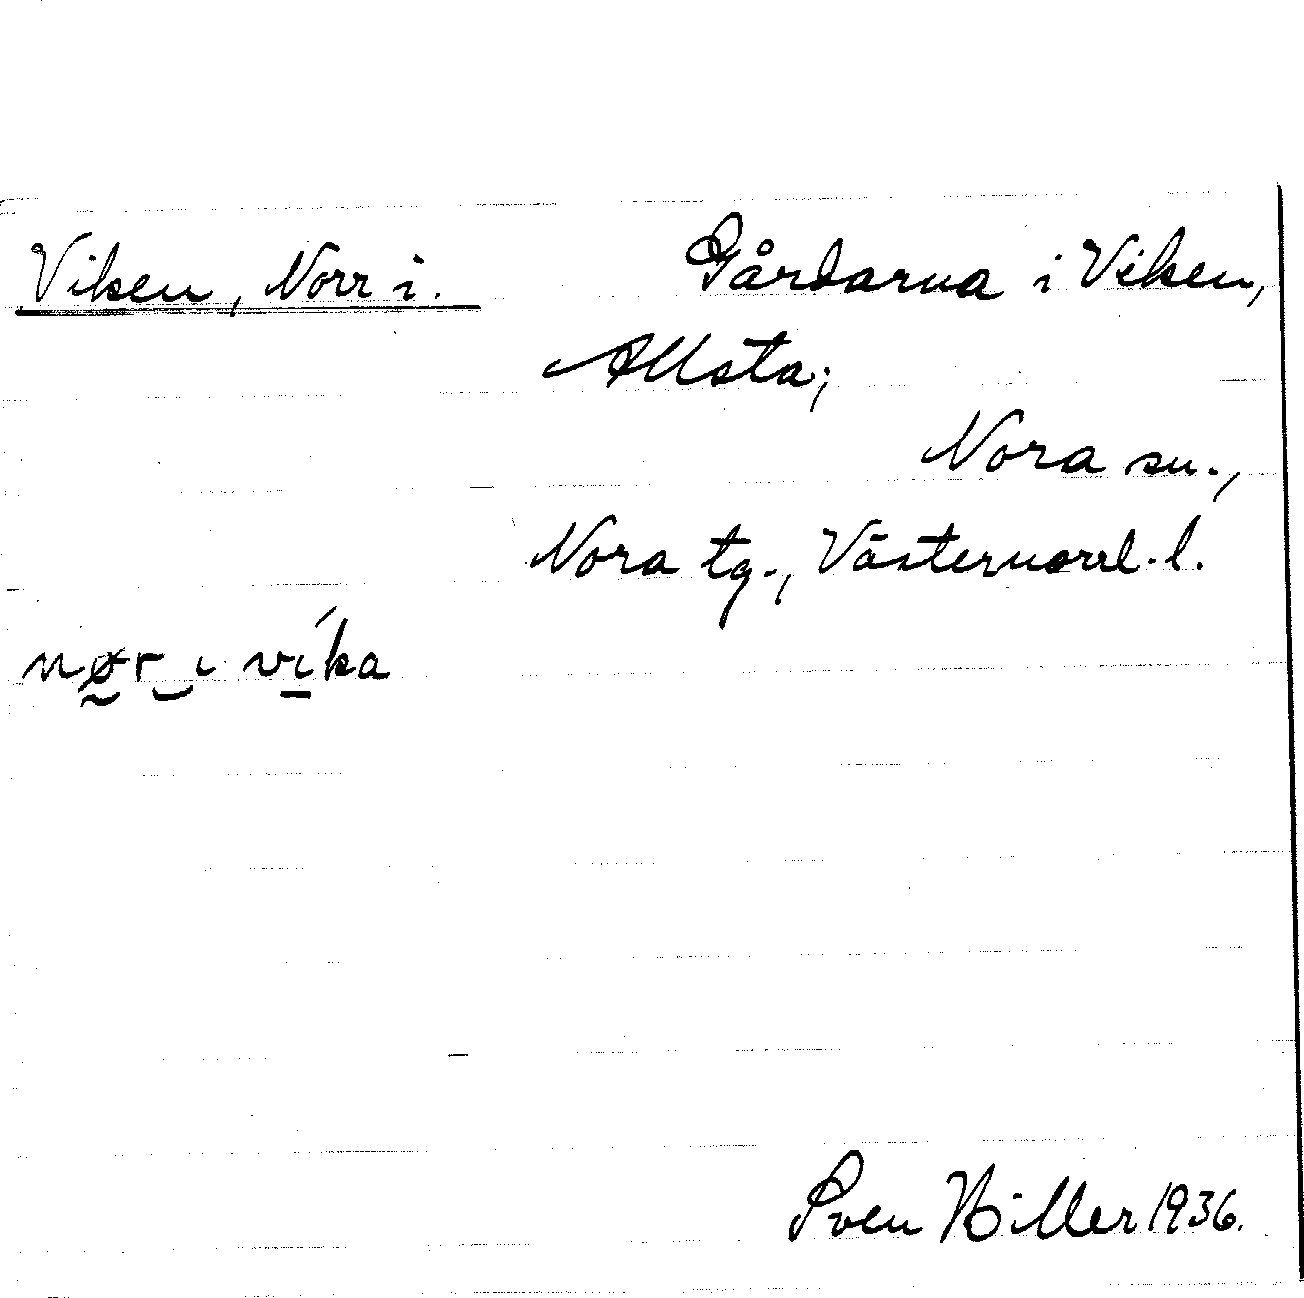 Viken, Norr i. Gårdarna i Viken,
Allsta;
Nora sn.,
Nora tg., Västernorrl. l.
nø̰r‿ı vı̱́ka
Sven Hiller 1936.